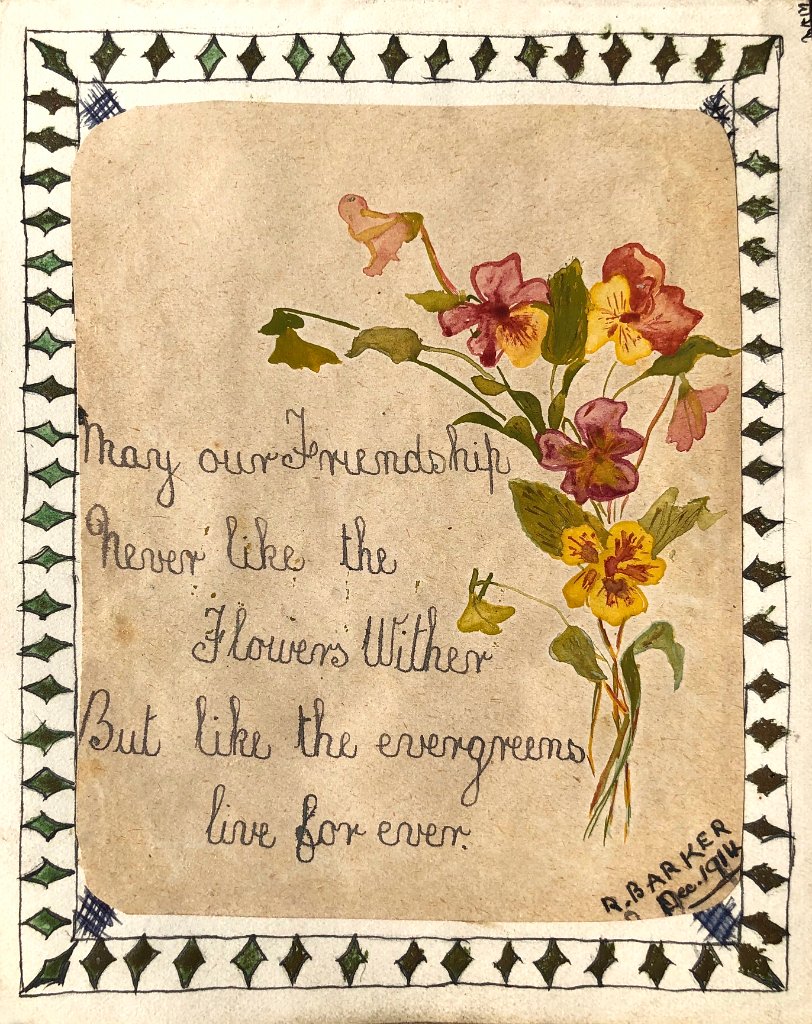 May our Friendship
Never like the
Flowers Wither
But like the evergreens
live for ever.
R. BARKER
Dec. 1914